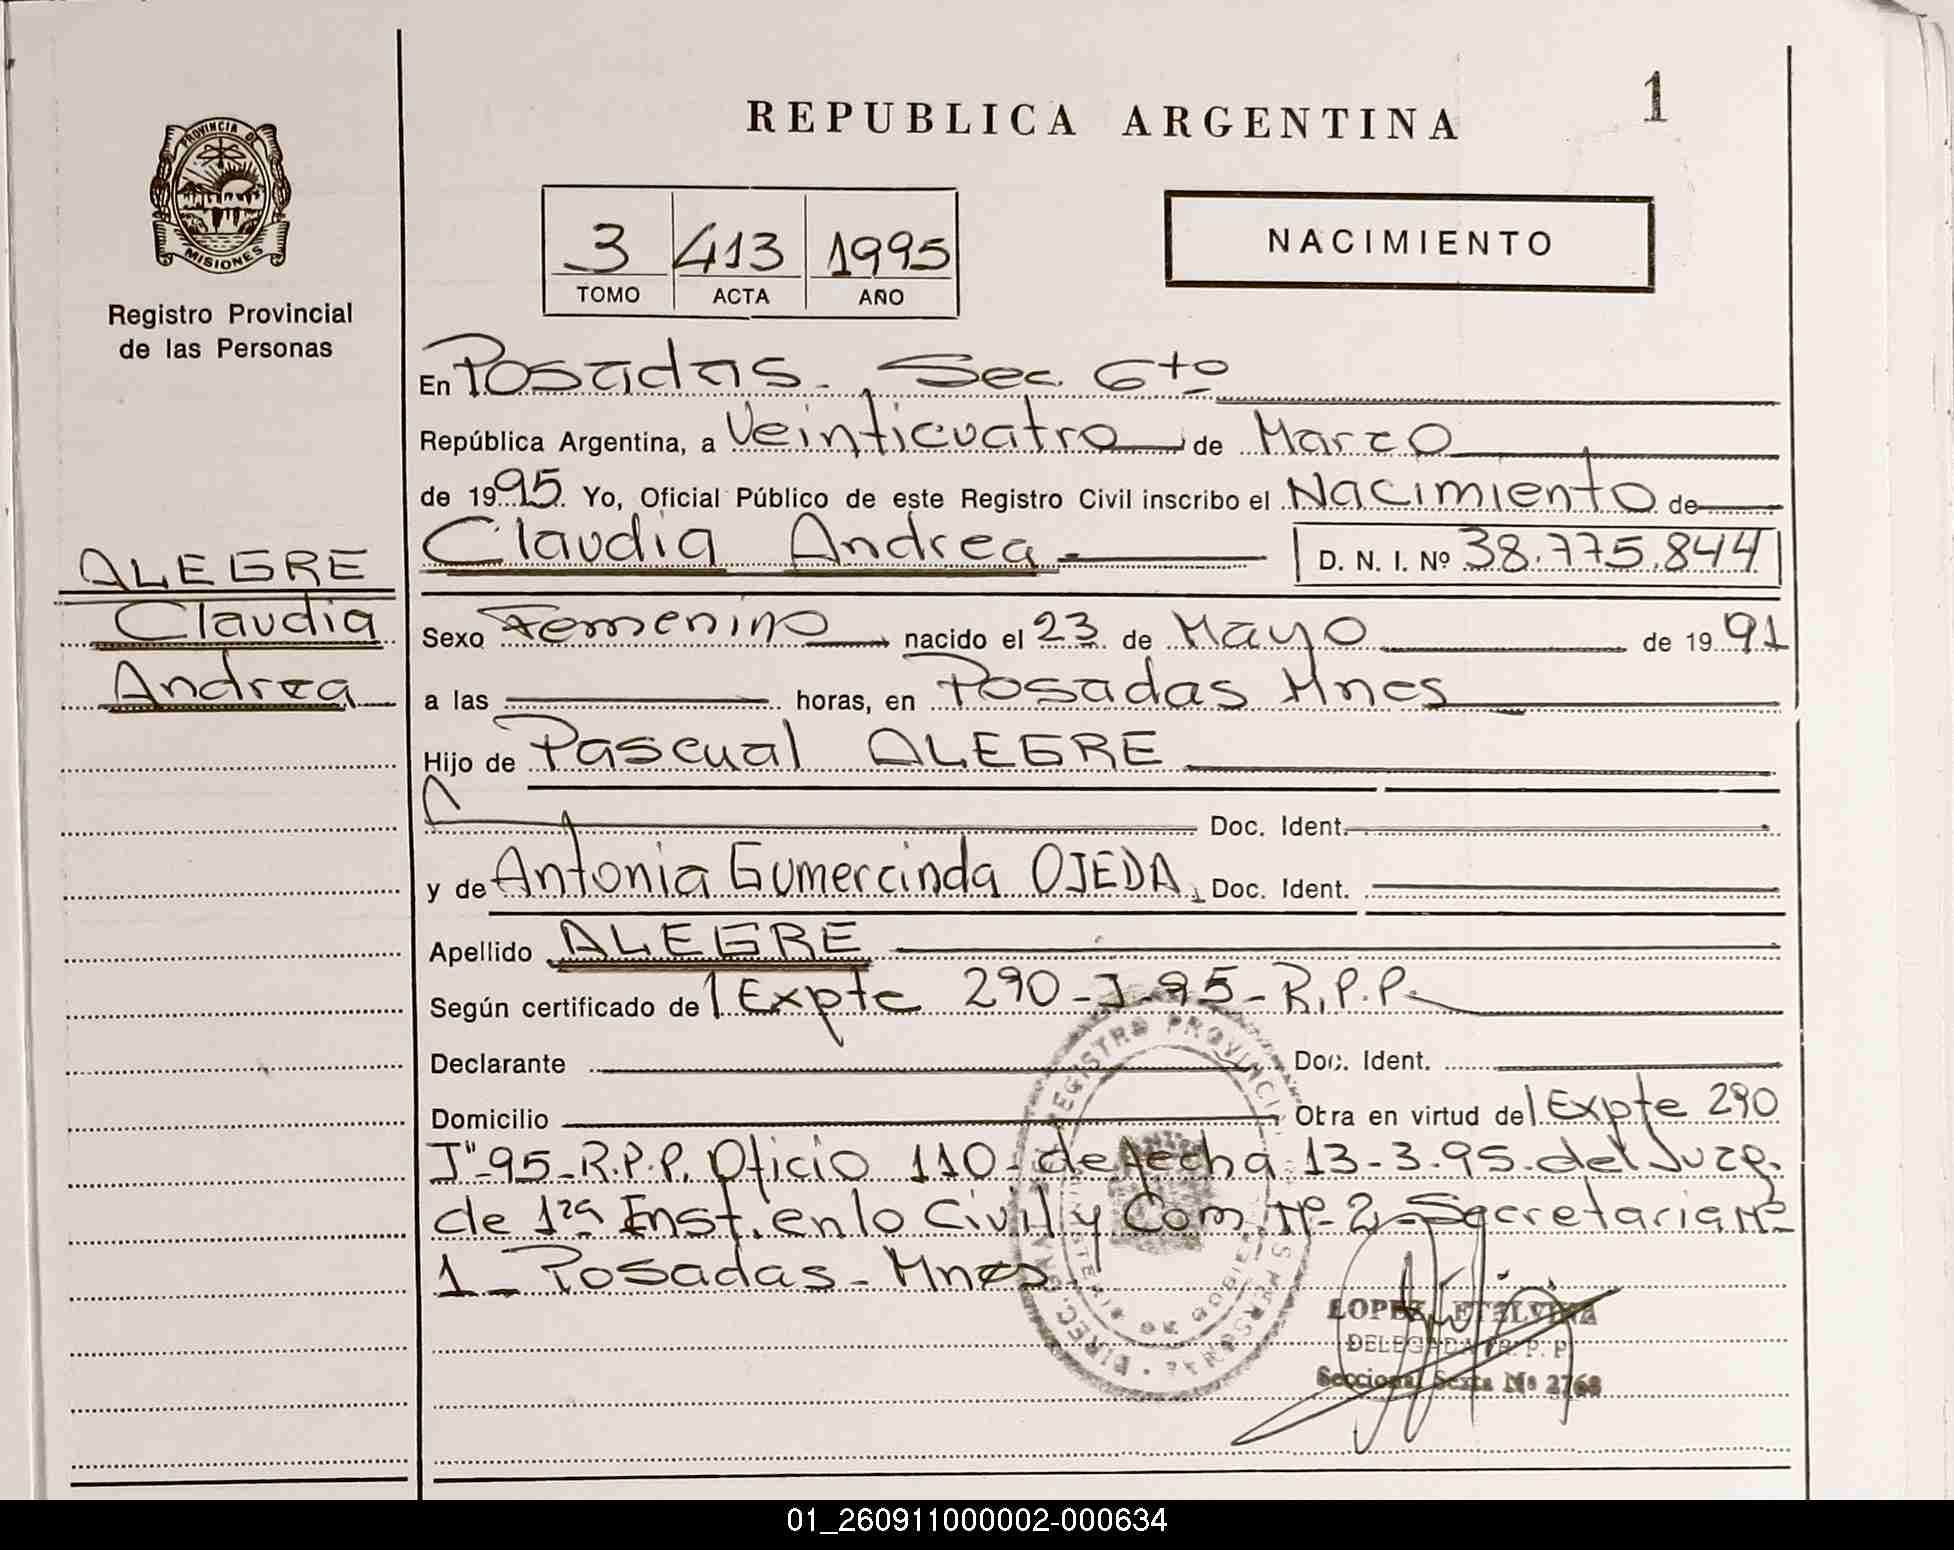 REPUBLICA ARGENTINA
1
PROVINCIA DE
MISIONES
Registro Provincial
de las Personas
3 413 1995
TOMO ACTA AÑO
NACIMIENTO
En Posadas - Sec. 6tº
República Argentina, a Veinticuatro de Marzo
de 1995. Yo, Oficial Público de este Registro Civil inscribo el Nacimiento de
Claudia Andrea D. N. I. Nº 38.775.844
ALEGRE
Claudia
Andrea
Sexo Femenino nacido el 23 de Mayo de 1991
a las horas, en Posadas Mnes
Hijo de Pascual ALEGRE
Doc. Ident.
y de Antonia Gumercinda OJEDA, Doc. Ident.
Apellido ALEGRE
Según certificado del Expte 290-J-95-R.P.P.
Declarante Doc. Ident.
Domicilio Otra en virtud del Expte 290
"J"-95-R.P.P. Oficio 110- de fecha 13-3-95- del Juzg.
de 1ra Inst. en lo Civil y Com. Nº 2, Secretaria Nº
1- Posadas - Mnes.
REGISTRO PROVINCIAL
LOPEZ, ETELVINA
DELEGADA R. P. P.
Seccional Sexta Nº 2768
01_260911000002-000634